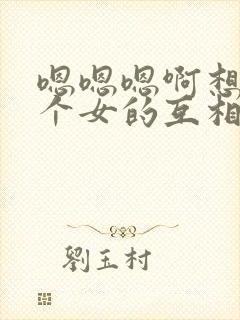 嗯嗯嗯啊想
个女的互相
劉玉村